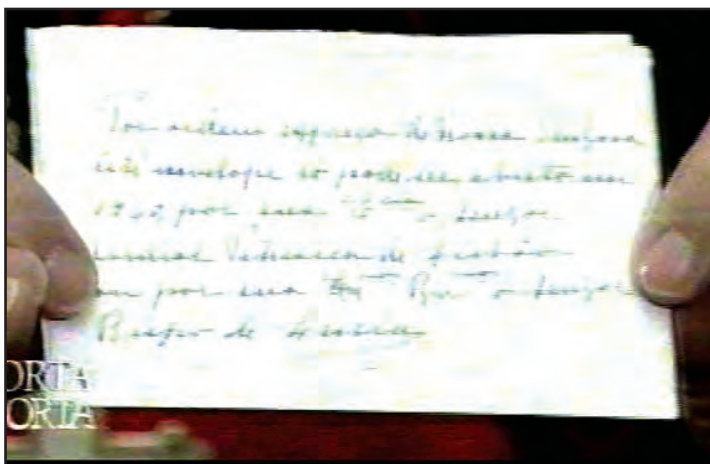 Por ordem expressa de Nossa Senhora
este envelope só pode ser aberto em
1960, por sua Em.cia o Senhor
Cardeal Patriarca de Lisboa
ou por sua Ex.cia Rev.ma o Senhor
Bispo de Leiria
PORTA
PORTA